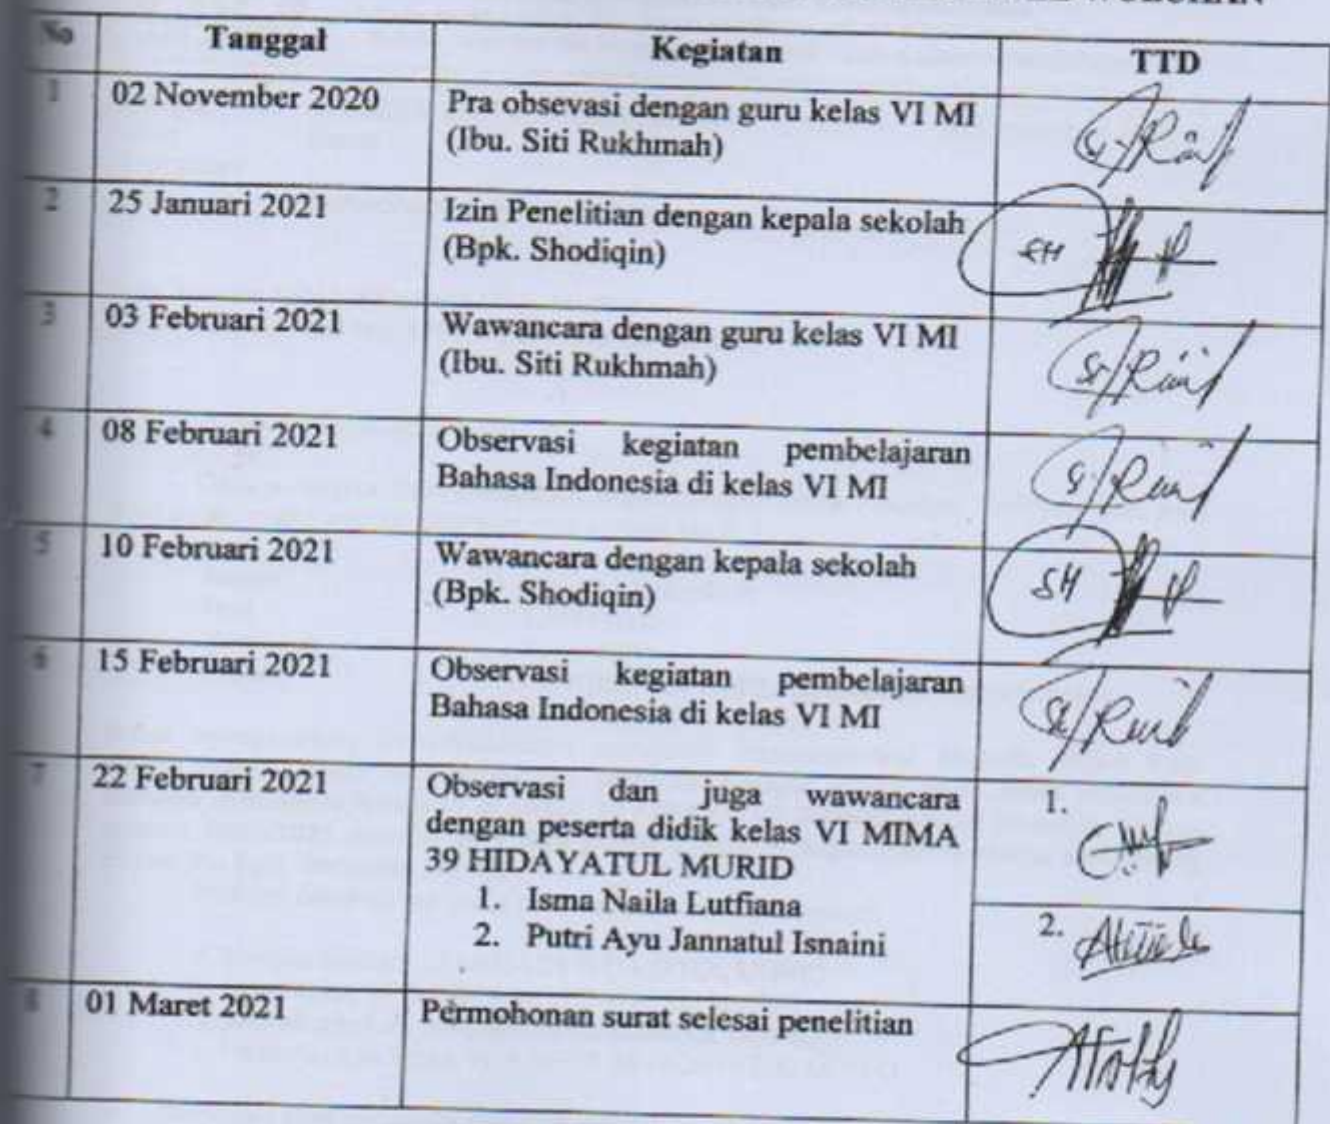 No Tanggal Kegiatan TTD
1 02 November 2020 Pra obsevasi dengan guru kelas VI MI
(Ibu. Siti Rukhmah)
2 25 Januari 2021 Izin Penelitian dengan kepala sekolah
(Bpk. Shodiqin)
3 03 Februari 2021 Wawancara dengan guru kelas VI MI
(Ibu. Siti Rukhmah)
4 08 Februari 2021 Observasi kegiatan pembelajaran
Bahasa Indonesia di kelas VI MI
5 10 Februari 2021 Wawancara dengan kepala sekolah
(Bpk. Shodiqin)
6 15 Februari 2021 Observasi kegiatan pembelajaran
Bahasa Indonesia di kelas VI MI
7 22 Februari 2021 Observasi dan juga wawancara 1.
dengan peserta didik kelas VI MIMA
39 HIDAYATUL MURID
1. Isma Naila Lutfiana
2. Putri Ayu Jannatul Isnaini 2.
8 01 Maret 2021 Permohonan surat selesai penelitian